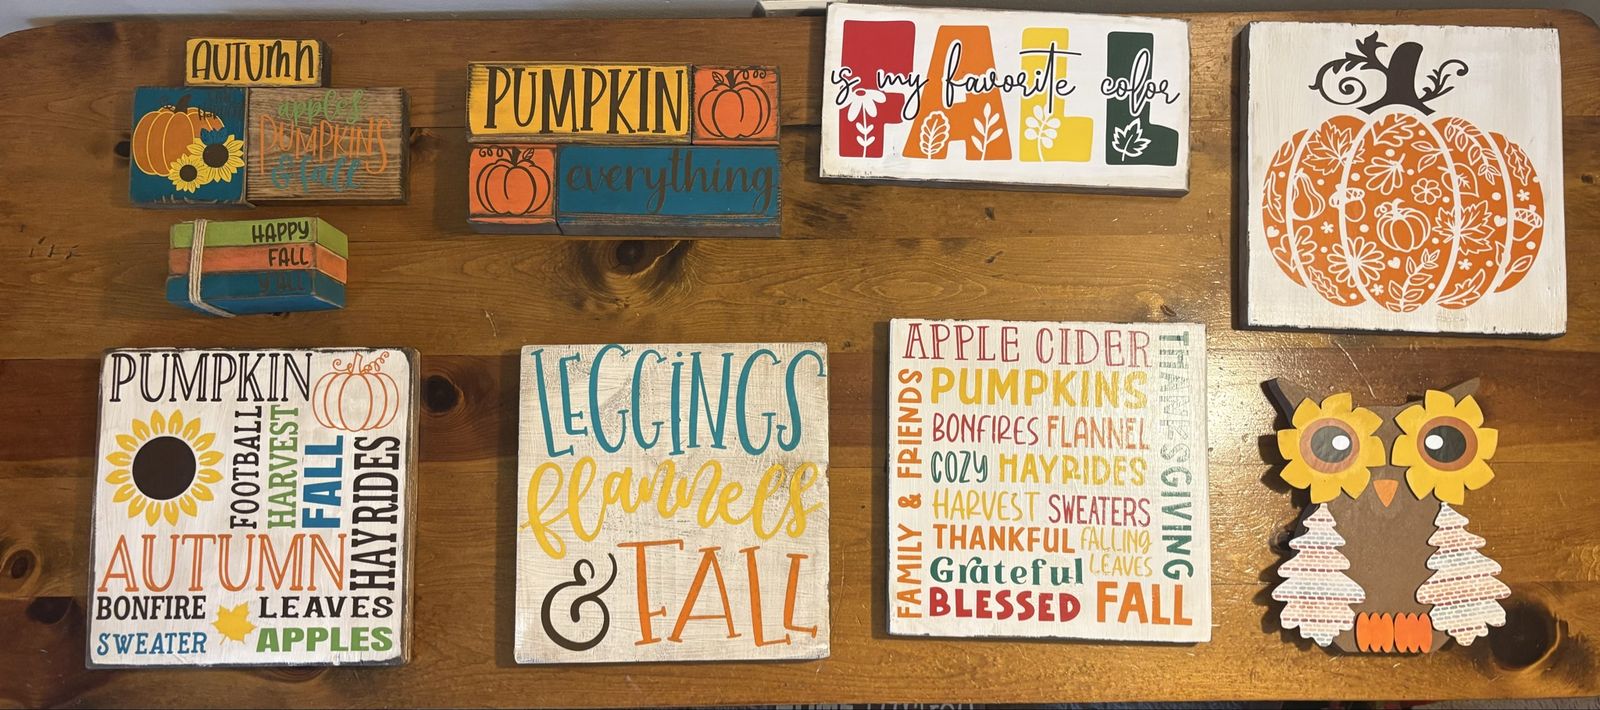 AUTUMN
apples
PUMPKINS
& fall
HAPPY
FALL
Y'ALL
PUMPKIN
everything
FALL
is my favorite color
PUMPKIN
FOOTBALL
HARVEST
FALL
HAYRIDES
AUTUMN
BONFIRE
LEAVES
SWEATER
APPLES
LEGGINGS
flannels
& FALL
APPLE CIDER
PUMPKINS
BONFIRES FLANNEL
COZY HAYRIDES
HARVEST SWEATERS
THANKFUL FALLING
LEAVES
Grateful
BLESSED FALL
FAMILY & FRIENDS
THANKSGIVING